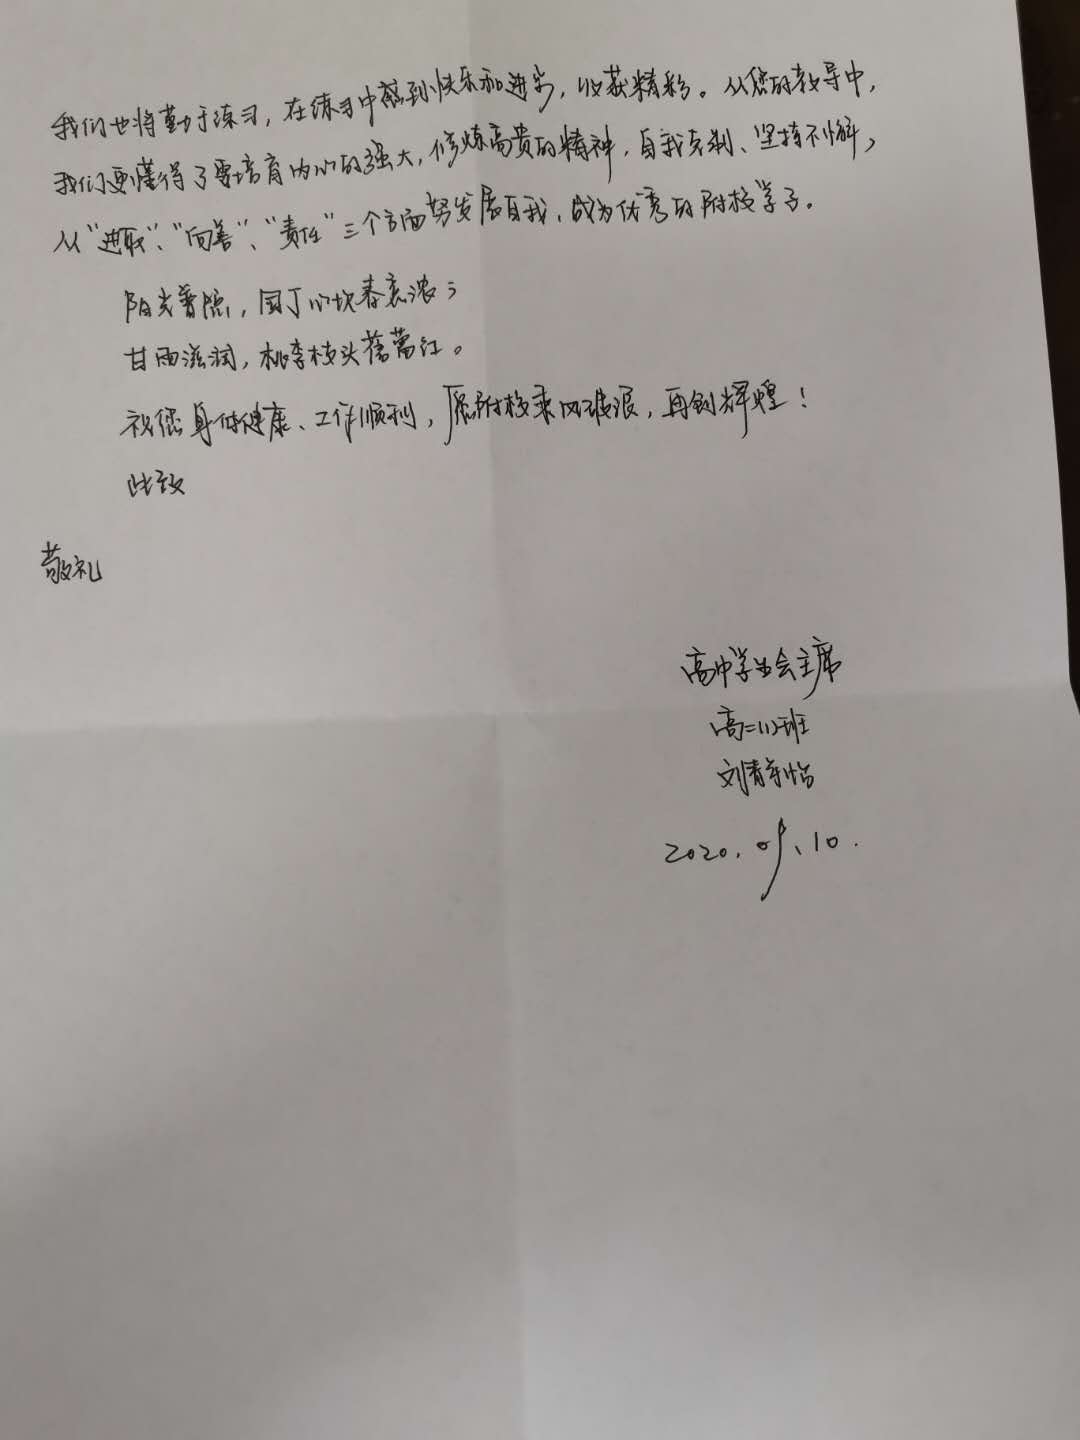 我们也将勤于练习，在练习中感到快乐和进步，收获精彩。从您的教导中，
我们更懂得了要培育内心的强大，修炼高贵的精神，自我克制、坚持不懈，
从“进取”、“向善”、“责任”三个方面努发展自我，成为优秀的附校学子。
阳光普照，园丁心坎春意浓；
甘雨滋润，桃李枝头蓓蕾红。
祝您身体健康、工作顺利，愿附校乘风破浪，再创辉煌！
此致
敬礼
高中学生会主席
高二(1)班
刘青怡
2020.09.10.